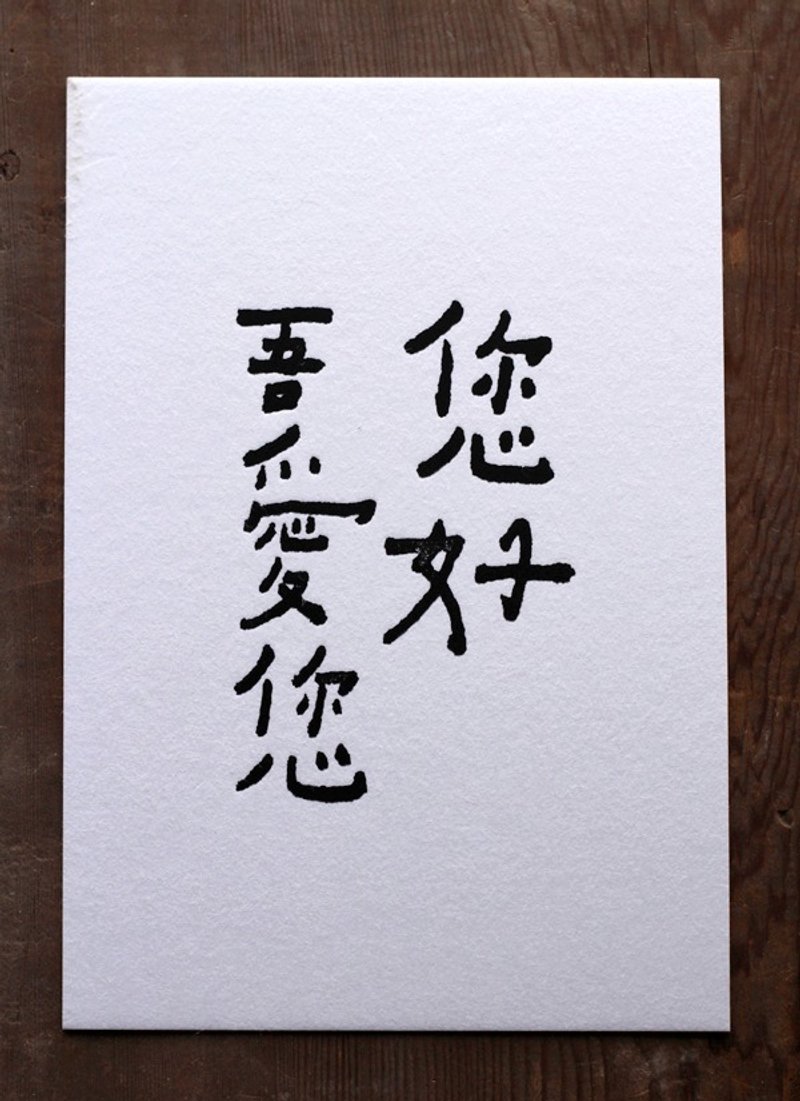 您好
吾愛您